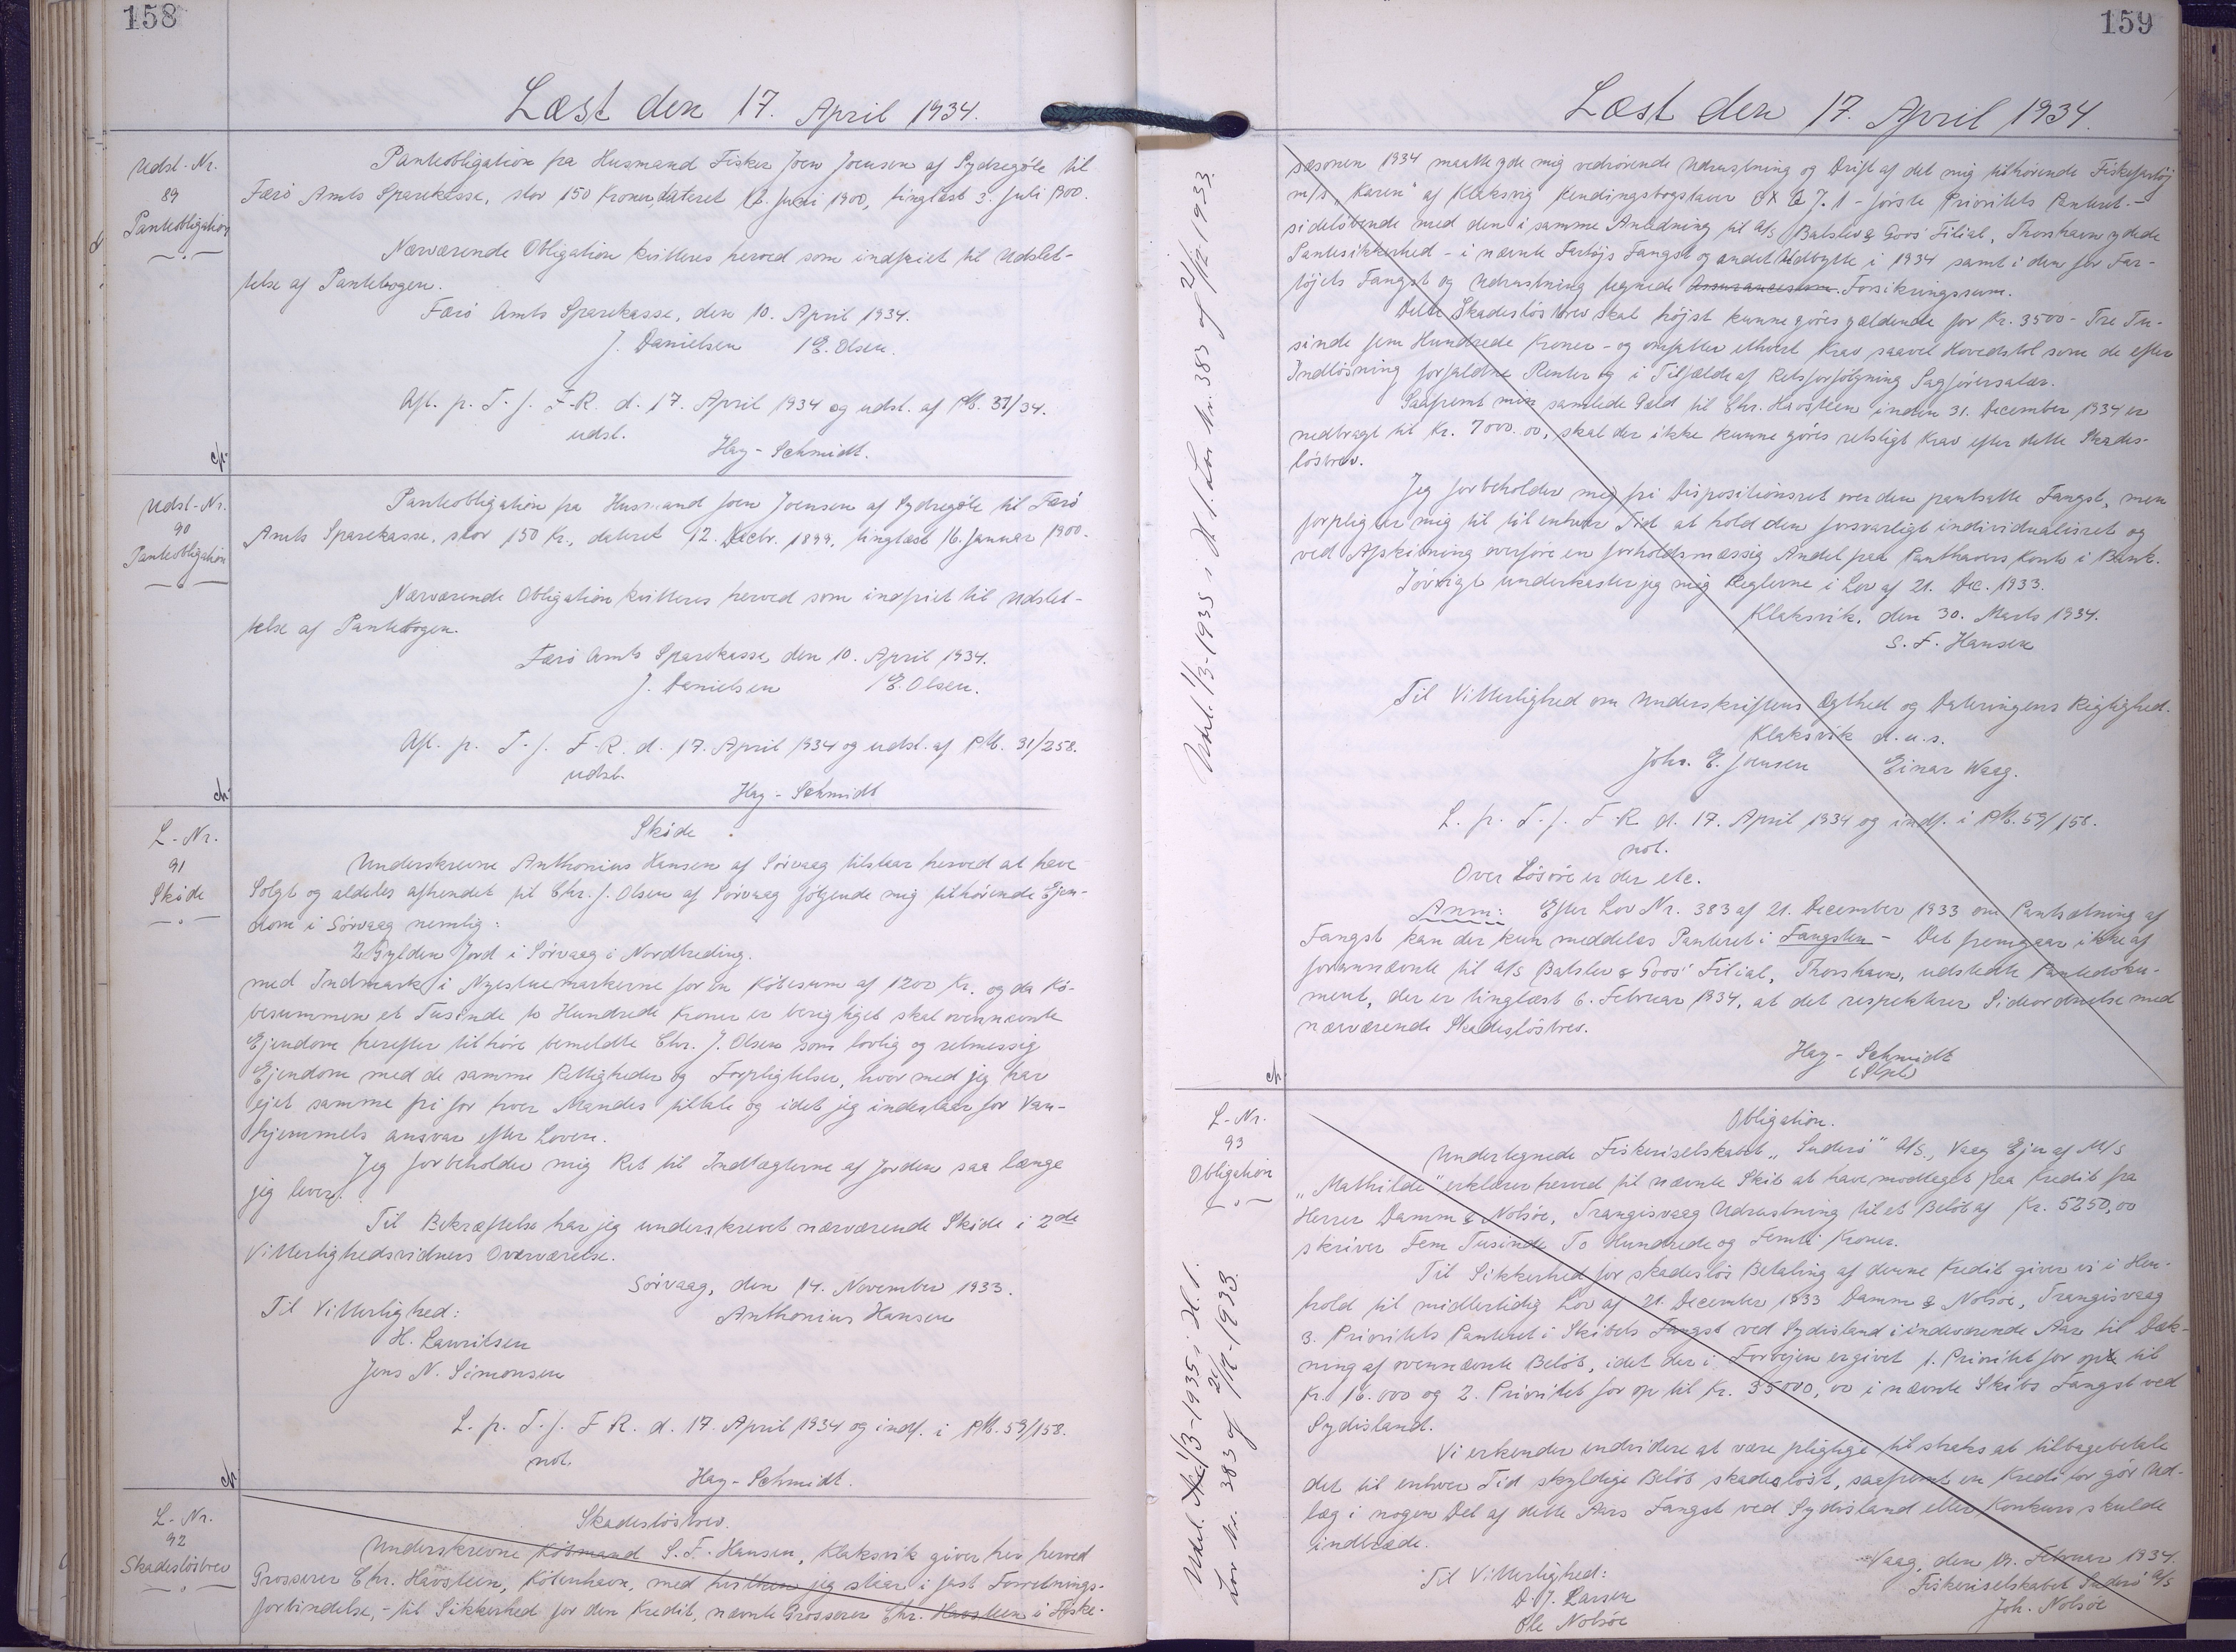 158
Læst den 17. April 1934.
Udsl.-Nr.
89
Panteobligation
Panteobligation fra Husmand Fisker Joen Joensen af Sydregöte til
Færö Amts Sparekasse, stor 150 Kroner, dateret 12. Juni 1900, tinglæst 3. Juli 1900.
Nærværende Obligation kvitteres herved som indfriet til Udslet-
telse af Pantebogen.
Færö Amts Sparekasse, den 10. April 1934.
J. Danielsen / E. Olsen.
Afl. p. T. f. F. R. d. 17. April 1934 og udsl. af PB. 37/34.
udsl.
Hay-Schmidt.
Udsl.-Nr.
90
Panteobligation
Panteobligation fra Husmand Joen Joensen af Sydregöte til Færö
Amts Sparekasse, stor 150 Kr., dateret 12. Decbr. 1899, tinglæst 16. Januar 1900.
Nærværende Obligation kvitteres herved som indfriet til Udslet-
telse af Pantebogen.
Færö Amts Sparekasse, den 10. April 1934.
J. Danielsen / E. Olsen.
Afl. p. T. f. F. R. d. 17. April 1934 og udsl. af PB. 31/258.
udsl.
Hay-Schmidt
L.-Nr.
91
Sköde
Sköde.
Underskrevne Anthonius Hansen af Sörvaag tilstaar herved at have
Solgt og aldeles afhendet til Chr. J. Olsen af Sörvaag fölgende mig tilhörende Ejen-
dom i Sörvaag nemlig:
2 Gylden Jord i Sörvaag i Nordtreding.
med Indmark i Nyestuemarkerne for en Köbesum af 1200 Kr. og da Kö-
besummen et Tusinde to Hundrede Kroner er berigtiget skal ovennævnte
Ejendom herefter tilhöre bemeldte Chr. J. Olsen som lovlig og retmessig
Ejendom med de samme Rettigheder og Forpligtelser, hvormed jeg har
ejet samme fri for hver Mandes tiltale og idet jeg indestaar for Van-
hjemmels ansvar efter Loven.
Jeg forbeholder mig Ret til Indtægterne af Jorden saa længe
jeg lever.
Til Bekræftelse har jeg underskrevet nærværende Sköde i 2de
Vitterlighedsvidners Overværelse.
Sörvaag, den 14. November 1933.
Til Vitterlighed: Anthonius Hansen
H. Lauritsen
Jens N. Simonsen
L. p. T. f. F. R. d. 17. April 1934 og indf. i PB. 53/158.
not.
Hay-Schmidt.
L.-Nr.
92
Skadeslösbrev
Skadeslösbrev.
Underskrevne Köbmand S. F. Hansen, Klaksvik giver her herved
Grosserer Chr. Havsteen, Köbenhavn, med hvilken jeg staar i fast Forretnings-
forbindelse, - til Sikkerhed for den Kredit, nævnte Grosserer Chr. Havsteen i Fiske-
159
Læst den 17. April 1934.
sæsonen 1934 maatte yde mig vedrörende Udrustning og Drift af det mig tilhörende Fiskefartöj
m/s "Karen" af Klaksvig Kendingsbogstaver - förste Prioritets Panteret. -
sidelöbende med den i samme Anledning til A/S Balslev & Goos' Filial, Thorshavn ydede
Pantesikkerhed - i nævnte Fartöjs Fangst og andet Udbytte i 1934 samt i den for Far-
töjets Fangst og Udrustning tegnede Assurancesum. Forsikringssum.
Dette Skadeslösbrev skal höjst kunne göres gældende for Kr. 3500 - Tre Tu-
sinde fem Hundrede Kroner - og omfatter ethvert Krav saavel Hovedstol som de efter
Indlösning forfaldne Renter og i Tilfælde af Retsforfölgning Sagförersalær.
Saafremt min samlede Gæld til Chr. Havsteen inden 31. December 1934 er
nedbragt til Kr. 7000.00, skal der ikke kunne göres retsligt Krav efter dette Skades-
lösbrev.
Jeg forbeholder mig fri Dispositionsret over den pantsatte Fangst, men
forpligter mig til til enhver Tid at hold den forsvarligt individualiseret og
ved Afskibning overföre en forholdsmæssig Andel paa Panthavers Konto i Bank.
Iövrigt underkaster jeg mig Reglerne i Lov af 21. Dec. 1933.
Klaksvik, den 30. Marts 1934.
S. F. Hansen
Til Vitterlighed om Underskriftens Ægthed og Dateringens Rigtighed.
Klaksvik d. u. s.
Johs. E. Joensen Einar Waag.
L. p. T. f. F. R d. 17. April 1934 og indf. i PB. 53/158.
not.
Over Lösöre er der etc.
Anm: Efter Lov Nr. 383 af 21. December 1933 om Pantsætning af
Fangst kan der kun meddeles Panteret i Fangsten - Det fremgaar ikke af
forannævnte til A/S Balslev & Goos' Filial, Thorshavn, udstedte Pantedoku-
ment, der er tinglæst 6. Februar 1934, at det respekterer Sideordnelse med
nærværende Skadeslösbrev.
Hay-Schmidt
Udsl. 1/3-1935 i H. t. Lov Nr. 383 af 21/12-1933.
L.-Nr.
93
Obligation
Obligation.
Undertegnede Fiskeriselskabet "Suderö" A/S., Vaag Ejer af M/S
"Mathilde" erklærer herved til nævnte Skib at have modtaget paa Kredit fra
Herrer Damm & Nolsöe, Trangisvaag Udrustning til et Belöb af Kr. 5250,00
skriver Fem Tusinde To Hundrede og Femti Kroner.
Til Sikkerhed for skadeslös Betaling af denne Kredit giver vi i Hen-
hold til midlertidig Lov af 21. December 1933 Damm & Nolsöe, Trangisvaag
3. Prioritets Panteret i Skibets Fangst ved Sydisland i indeværende Aar til Dæk-
ning af ovennævnte Belöb, idet der i Forvejen er givet 1. Prioritet for op til
Kr. 16.000 og 2. Prioritet for op til Kr. 35000,00 i nævnte Skibs Fangst ved
Sydisland.
Vi erkender endvidere at være pligtige til straks at tilbagebetale
det til enhver Tid skyldige Belöb skadeslöst, saafremt en Kreditor gör Ud-
læg i nogen Del af dette Aars Fangst ved Sydisland eller Konkurs skulde
indtræde.
Vaag, den Februar 1934.
Til Vitterlighed: Fiskeriselskabet Suderö A/S
D. J. Larsen Joh. Nolsöe
Ole Nolsöe
Udsl. 1/3-1935 i H. t.
Lov Nr. 383 af 21/12-1933.